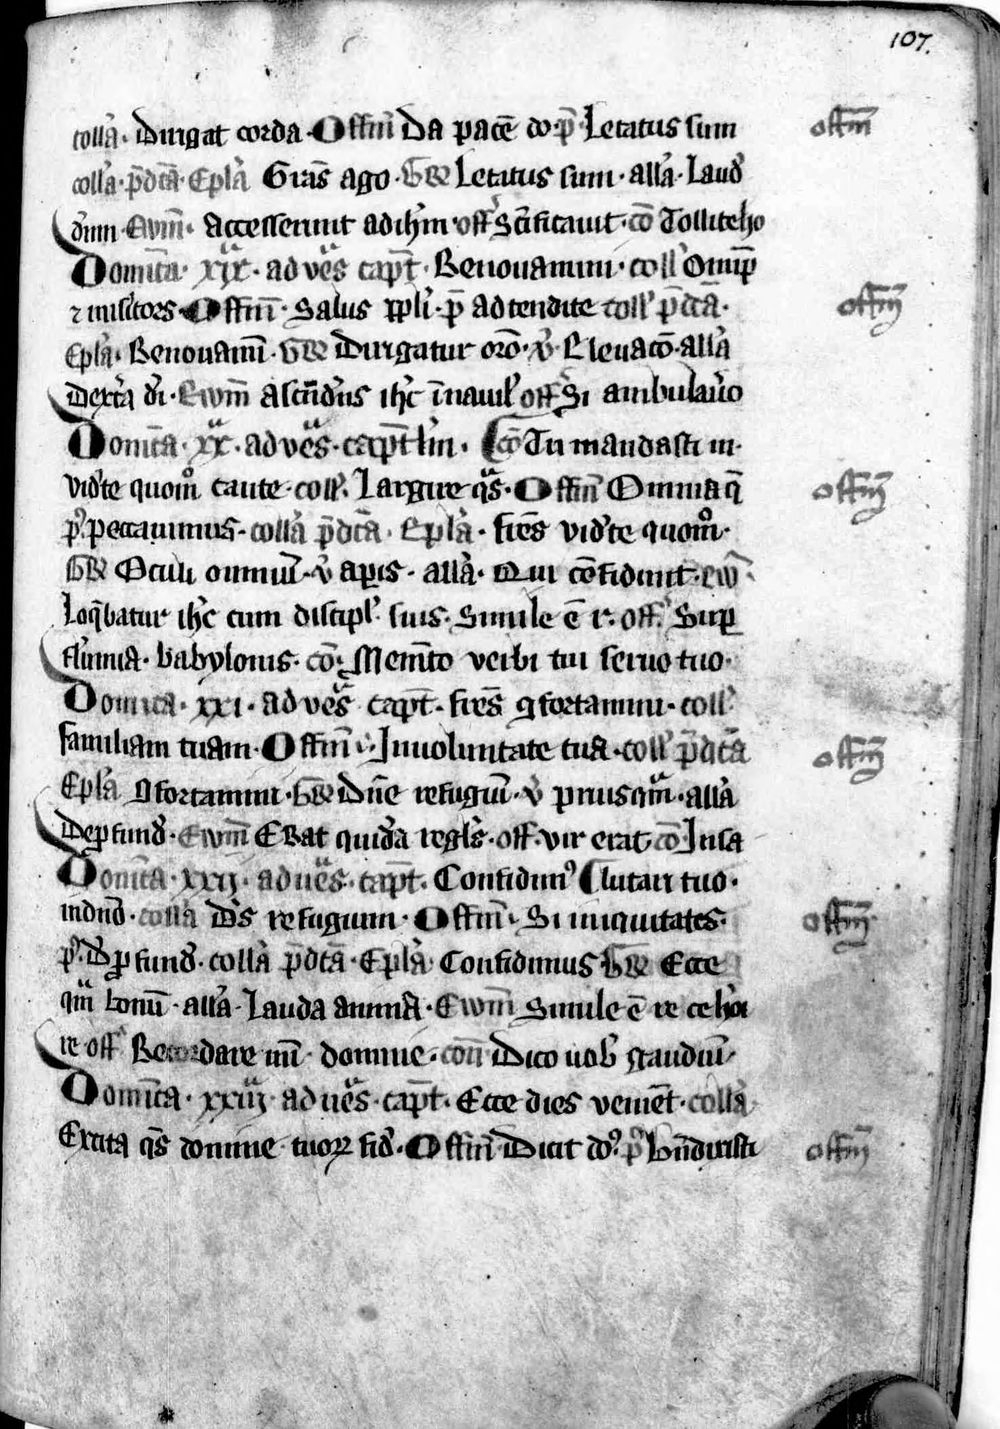 107.
coll'a · Dirigat corda · Offm̄ Da pacē do · p̄ · Letatus sum
offm̄
coll'a · p̄dcā · Epl'a Grās ago · Gr̄ Letatus sum · all'a · Laud'
d'nm · Ewm̄ · Accesserunt ad ih̄m · off' Sc̄ificauit · cō Tollite ho
Domīca · xix · ad ves̄ capt̄ · Renouamini · coll' Omīp
⁊ miscdors · Offm̄ · Salus ppli · p̄ adtendite coll' p̄dcā ·
offm̄
Epl'a · Renouam̄ · Gr̄ Dirigatur orō · v' · Eleuacō · all'a
Dext'a di · Ewm̄ ascēd'ns ih̄c ī nauil' off' Si ambulau'o
Domīca · xx · ad ves̄ · capt̄l'm · cō Tu mandasti m ·
vid'te quom° caute · coll' · Largire qs̄ · Offm̄ Omnia q̄
offm̄
p' peccauimus · coll'a p̄dcā · Epl'a · frēs vid'te quom° ·
Gr̄ Oculi omniū · v' aper̄is · all'a · Qui cōfidunt · ew̄ ·
Loq̄batur ih̄c cum discipl' suis · Simile ē r · off' Sup
flu'mia · babylonis · cō · Mem̄to verbi tui seruo tuo ·
Domīca · xxi · ad ves̄ capt̄ · frēs ꝯfortamini · coll'
familiam tuam · Offm̄ · In uoluntate tua · coll' p̄dcā
offm̄
Epl'a ꝯfortamini · Gr̄ Dn̄e refugiū · v' priusqm̄ · all'a
De pfund' · Ewm̄ Erat quid'a regl's · off' vir erat cō In sa
Domīca · xxij · ad ues̄ · capt̄ · Confidim' lutari tuo ·
in dn̄o · coll'a Ds̄ refugium · Offm̄ · Si iniquitates ·
offm̄
p' · D' pfund' · coll'a p̄dcā · Epl'a Confidimus Gr̄ Ecce
qm̄ bonū · all'a · Lauda anima · Ewm̄ Simile ē re ce ho'i
re off' Recordare mī domine · com̄ Dico uob' gaudiū ·
Domīca · xxiij · ad ues̄ · capt̄ · Ecce dies venient · coll'a
Excita qs̄ domine tuoꝝ fid' · Offm̄ Dicit do' · p' Bn̄dixisti
offm̄